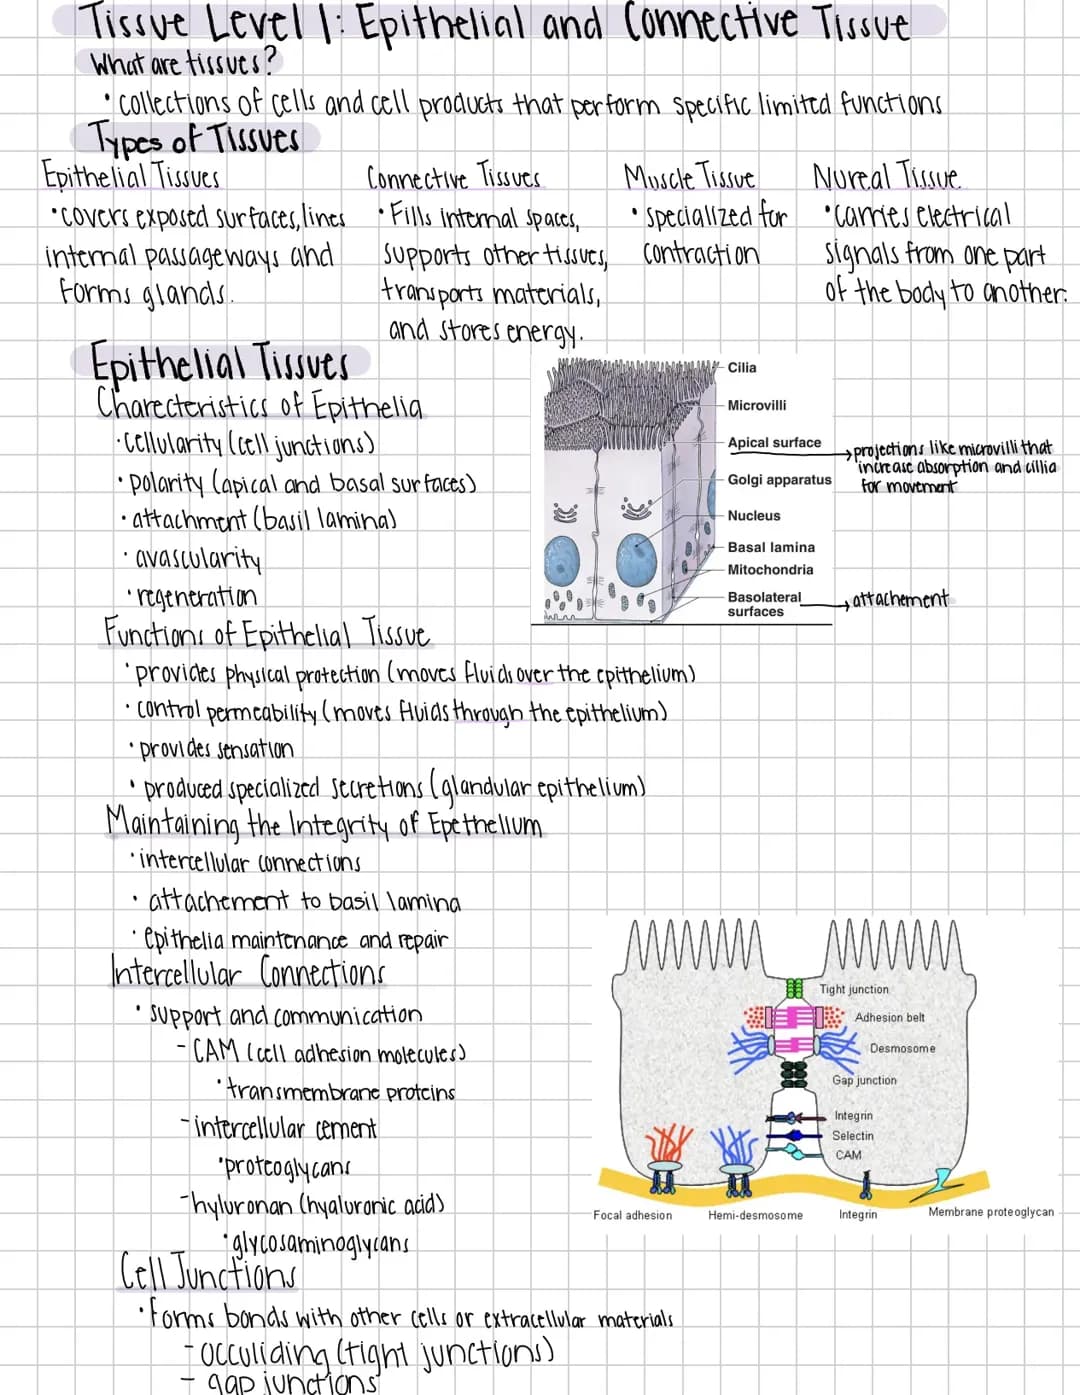 Tissue Level 1: Epithelial and Connective Tissue
What are tissues?
• collections of cells and cell products that perform specific limited functions
Types of Tissues
Epithelial Tissues
• covers exposed surfaces, lines
internal passageways and
forms glands.
Connective Tissues
• Fills internal spaces,
supports other tissues,
transports materials,
and stores energy.
Muscle Tissue
• specialized for
contraction
Nureal Tissue
• carries electrical
signals from one part
of the body to another.
Epithelial Tissues
Charecteristics of Epithelia
• Cellularity (cell junctions)
• polarity (apical and basal surfaces)
• attachment (basil lamina)
• avascularity
• regeneration
Cilia
Microvilli
Apical surface
Golgi apparatus
Nucleus
Basal lamina
Mitochondria
Basolateral
surfaces
→ projections like microvilli that
increase absorption and cillia
for movement
→ attachement
Functions of Epithelial Tissue
• provides physical protection (moves fluids over the epithelium)
• control permeability (moves fluids through the epithelium)
• provides sensation
• produced specialized secretions (glandular epithelium)
Maintaining the Integrity of Epethelium
• intercellular connections
• attachement to basil lamina
• epithelia maintenance and repair
Intercellular Connections
• support and communication
- CAM (cell adhesion molecules)
• transmembrane proteins
- intercellular cement
• proteoglycans
- hyluronan (hyaluronic acid)
• glycosaminoglycans
Tight junction
Adhesion belt
Desmosome
Gap junction
Integrin
Selectin
CAM
Focal adhesion
Hemi-desmosome
Integrin
Membrane proteoglycan
Cell Junctions
• forms bonds with other cells or extracellular materials
- occuliding (tight junctions)
- gap junctions